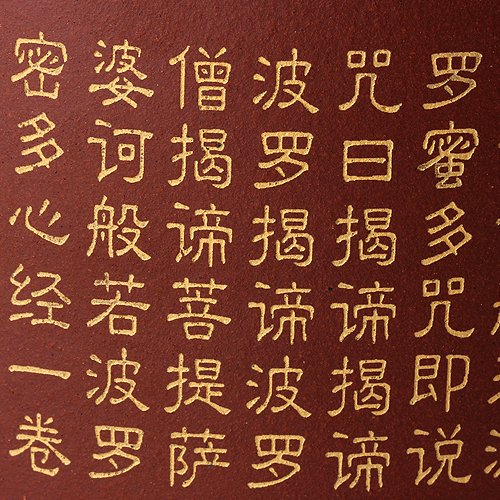 罗蜜多咒即说
咒曰揭谛揭谛
波罗揭谛波罗
僧揭谛菩提萨
婆诃般若波罗
密多心经一卷